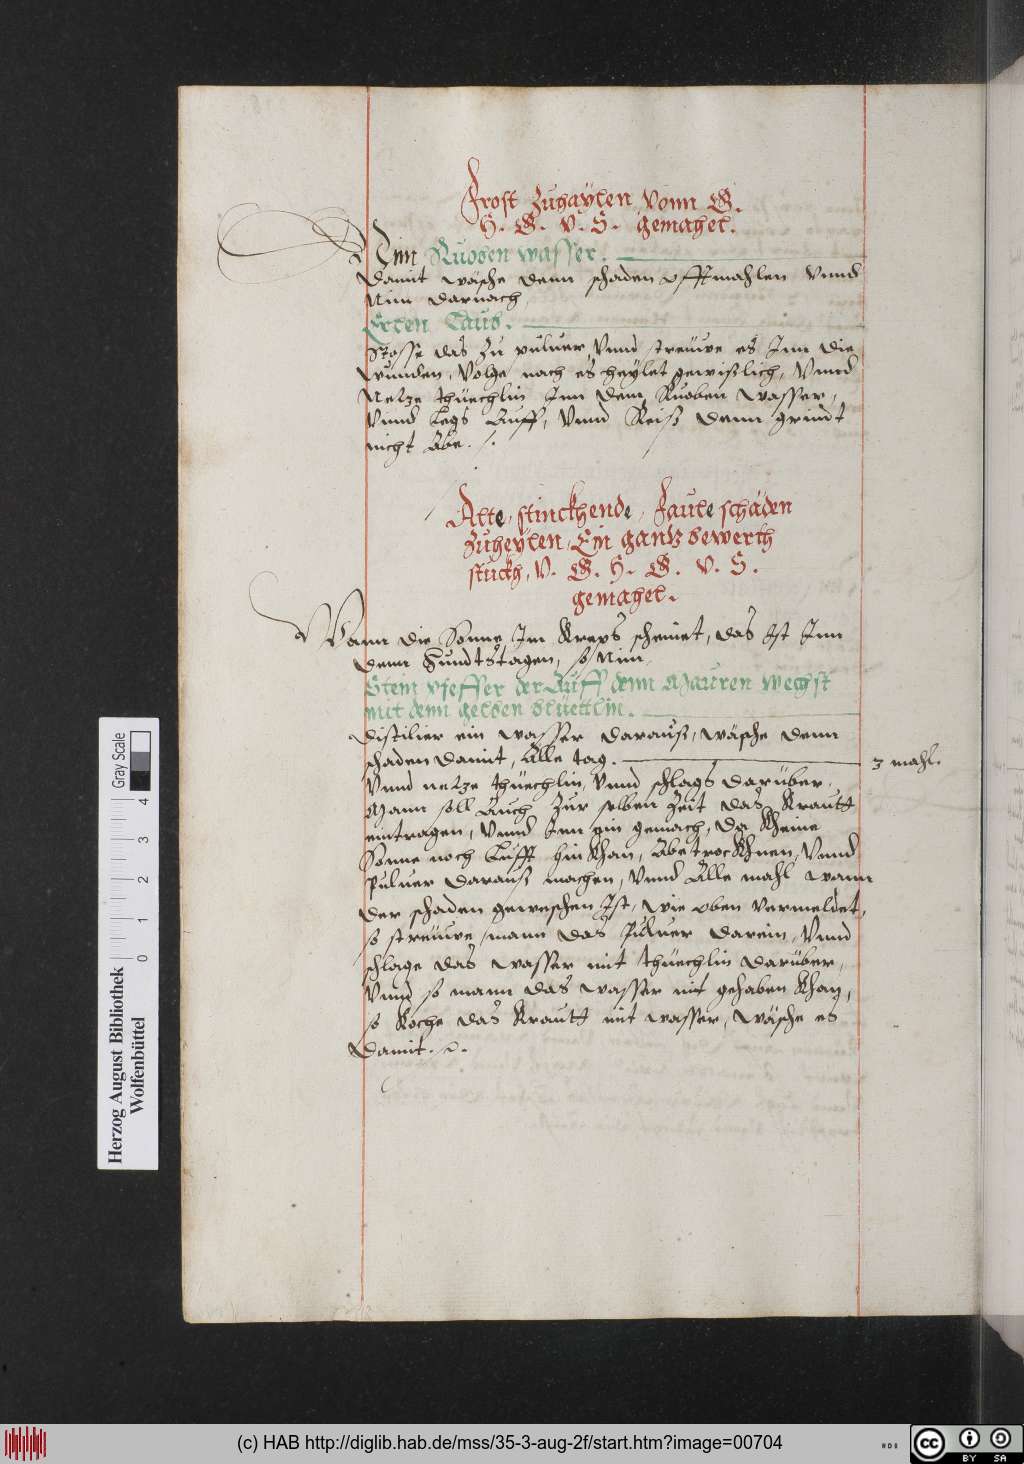 Frost Zuhaÿlen, Vonn G.
H. G. V. S. gemahel.
Nim Ruoben wasser.
Damit wäsche denn schaden offtmahlen Vnnd
Nim darnach,
Erlen Laub.
Stosse das zu puluer, Vnnd streüwe es Inn die
wunden, Volge nach es heÿlet gewißlich, Vnnd
Netze thüechlin Inn dem Ruoben wasser,
Vnnd Legs Auff, Vnnd Reiß denn grindt
nicht Abe. /.
Alte, stinckhende, Faule schäden
Zuheÿlen, Ein gantz bewerth
stuckh, V. G. H. G. V. S.
gemahel.
Wann die Sonne Im Kreps scheinet, das Ist Inn
denn Hundtstagen, so Nim,
Stein pfeffer der Auff denn Mauren wechst
mit denn gelben blüettlin.
Distilier ein wasser darauß, wäsche denn
schaden damit, Alle tag.
3 mahl.
Vnnd netze thüechlin, Vnnd schlags darüber,
Mann soll Auch Zur selben Zeit das Krautt
eintragen, Vnnd Inn ein gemach, da Kheine
Sonne noch Lufft hin Khan, Abetrockhnen, Vnnd
Puluer darauß machen, Vnnd Alle mahl wann
der schaden geweschen Ist, wie oben vermeldet,
so streüwe mann das Puluer darein, Vnnd
schlage das wasser mit thüechlin darüber,
Vnnd so mann das wasser nit gehaben Khan,
so Koche das Krautt mit wasser, wäsche es
damit.
Herzog August Bibliothek
Wolfenbüttel
Gray Scale
0 1 2 3 4
(c) HAB http://diglib.hab.de/mss/35-3-aug-2f/start.htm?image=00704
cc BY SA